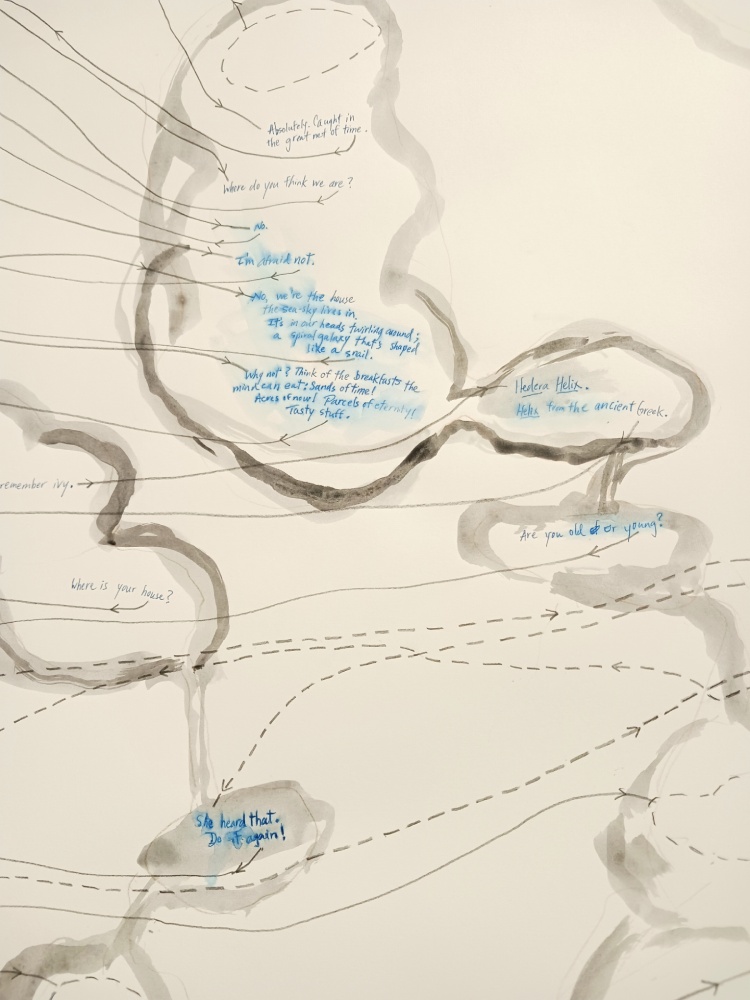 Absolutely. Caught in
the great net of time.
Where do you think we are?
No.
I'm afraid not.
No, we're the house
the sea-sky lives in.
It's in our heads twirling around;
a spiral galaxy that's shaped
like a snail.
Why not? Think of the breakfasts the
mind can eat: Sands of time!
Acres of now! Parcels of eternity!
Tasty stuff.
Hedera Helix.
Helix from the ancient Greek.
remember ivy.
Are you old or young?
Where is your house?
She heard that.
Do it again!